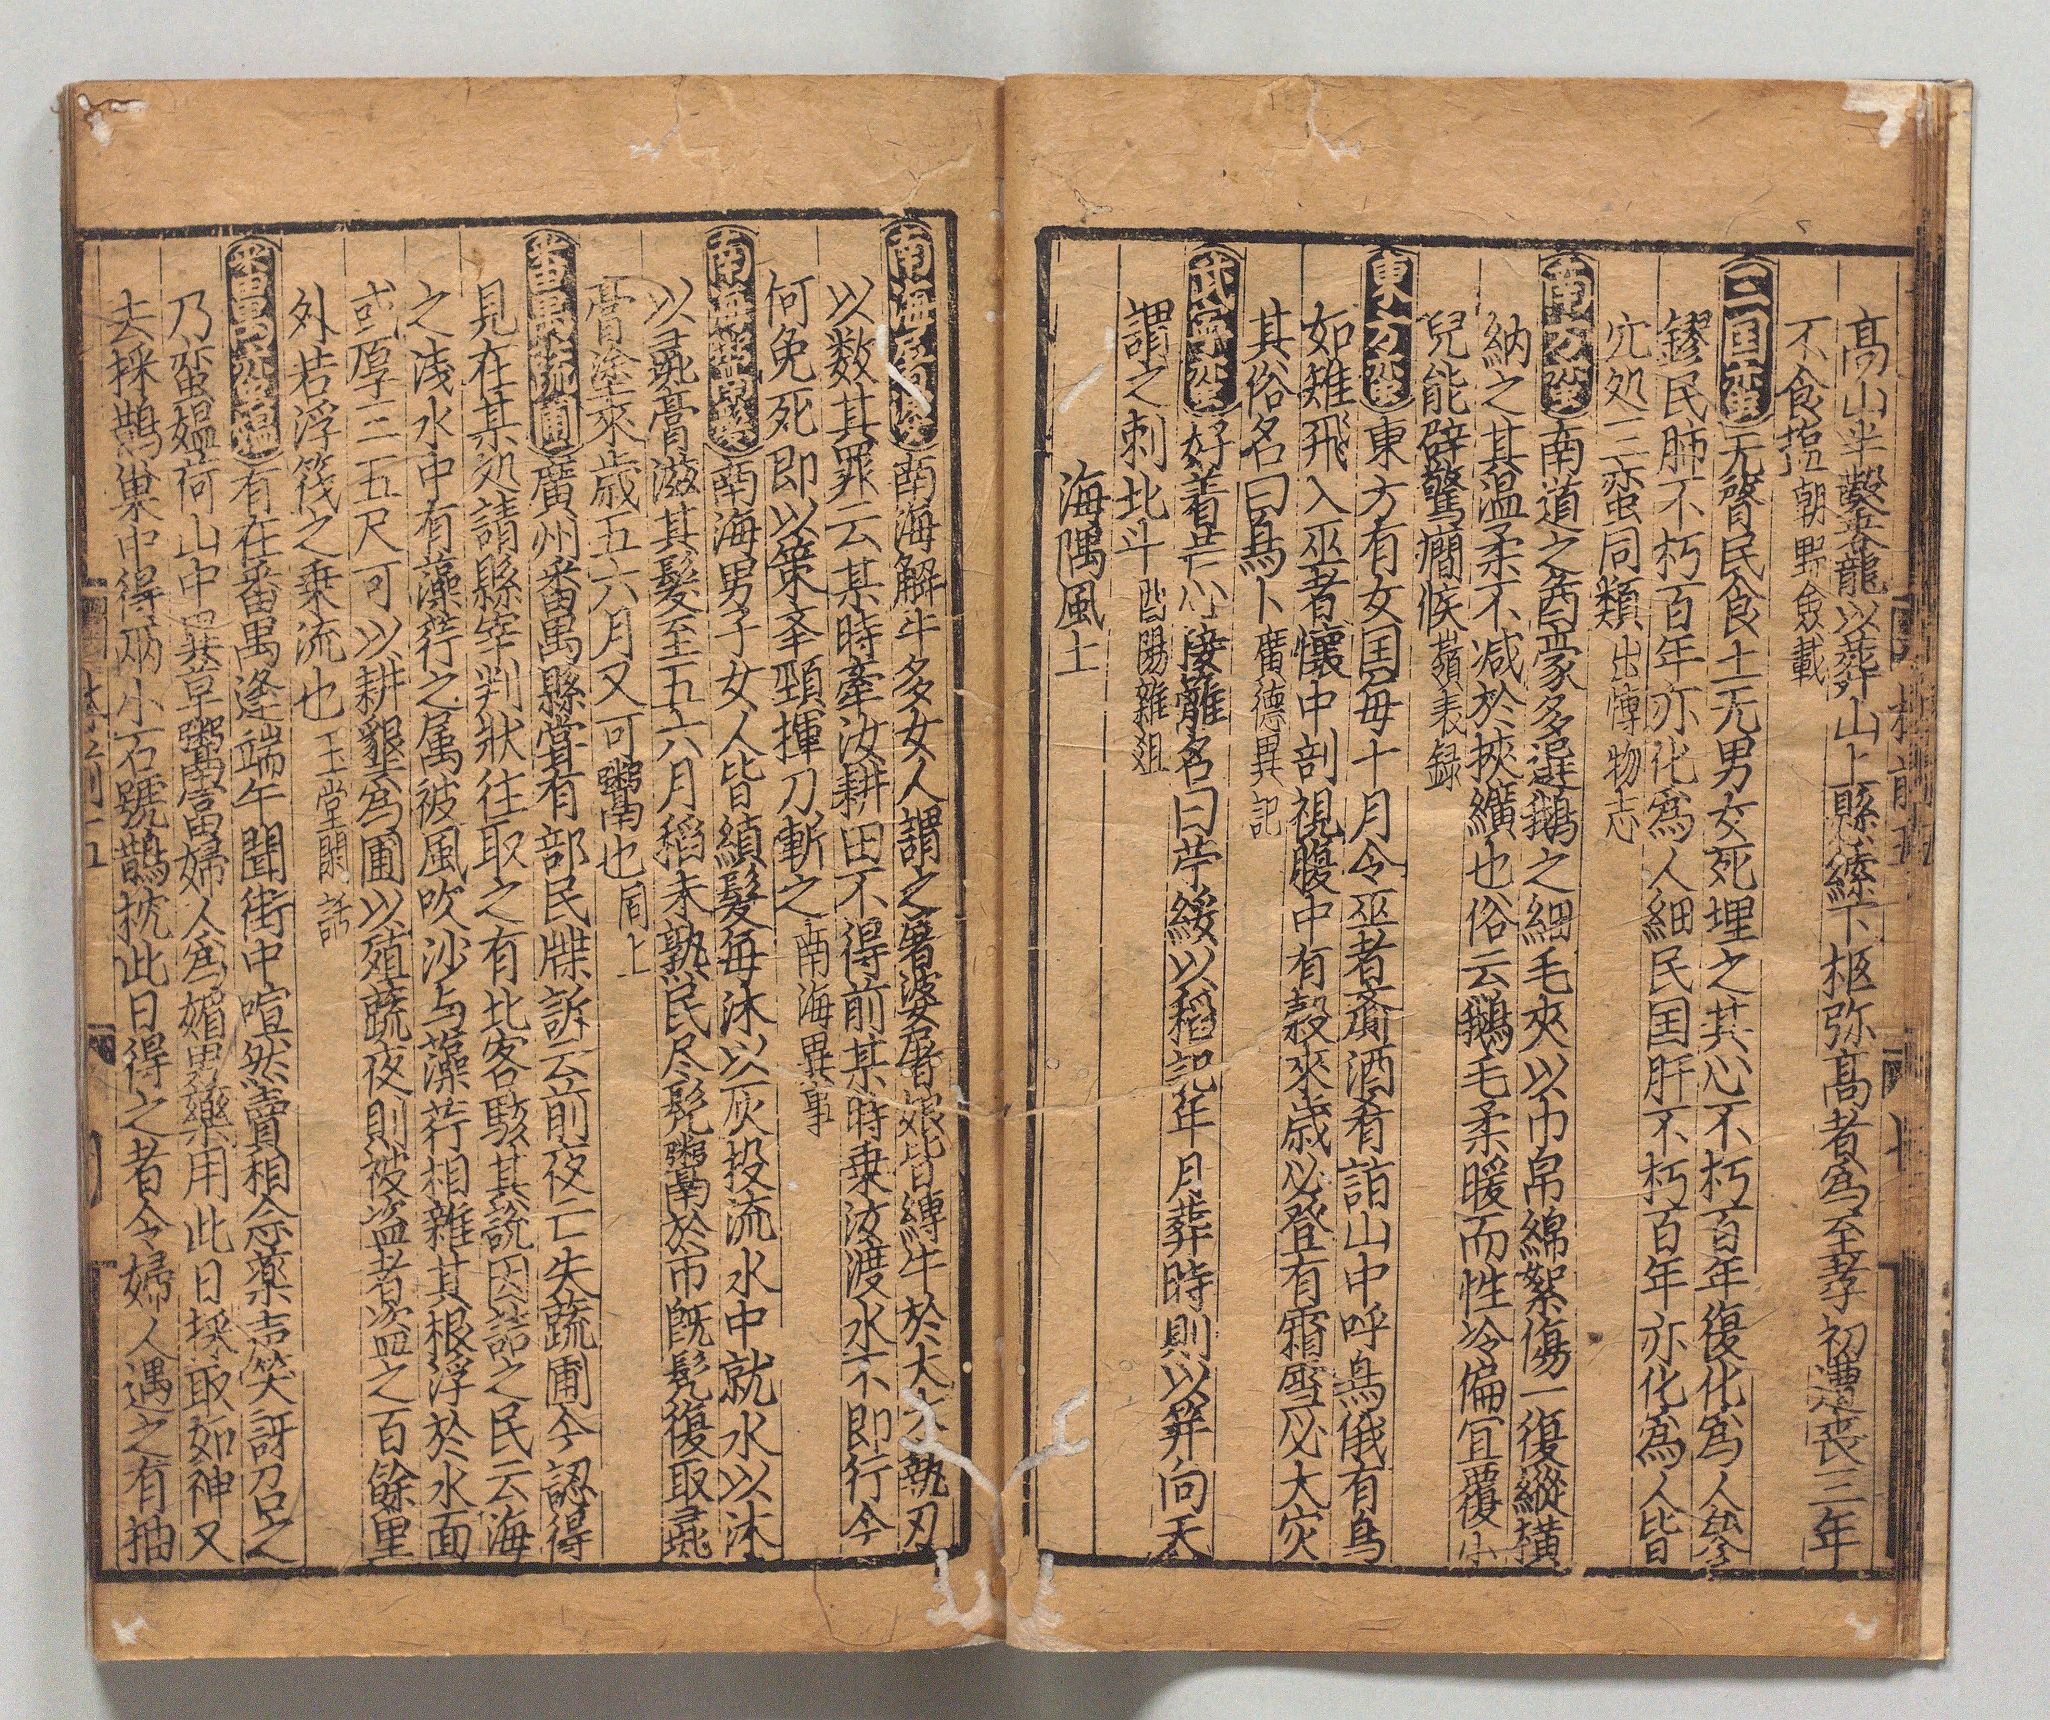 高山半鑿龕以葬山上縣縿下柩弥高者為至孝初遭喪三年
不食塩朝野僉載
三国蛮无䏿民食土无男女死埋之其心不朽百年復化為人
鏐民肺不朽百年亦化為人細民国肝不朽百年亦化為人皆
穴処三蛮同類出博物志
南方蛮南道之酋豪多選鵝之細毛夾以巾帛綿絮傷一復縱横
納之其温柔不减於挾纊也俗云鵝毛柔暖而性冷偏冝覆小
兒能辟驚癇疾嶺表録
東方蛮東方有女国每十月令巫者齎酒肴詣山中呼鳥俄有鳥
如雉飛入巫者懷中剖視腹中有穀來歲必登有霜雪必大灾
其俗名曰鳥卜廣德異記
武寧蛮好着芒心接離名曰苧綏以稻記年月葬時則以笄向天
謂之刺北斗酉陽雜爼
海隅風土
南海解牛多女人謂之屠婆屠娘皆縛牛於大木執刃
以数其罪云某時牽汝耕田不得前某時乗汝渡水不即行今
何免死即以策牽頸揮刀斬之南海異事
南海男子女人皆縝髮每沐以灰投流水中就水以沐
以彘膏滋其髮至五六月稻未熟民尽髡鬻於市既髡復取彘
膏塗來歲五六月又可鬻也同上
番禺蔬圃廣州番禺縣嘗有部民牒訴云前夜亡失蔬圃今認得
見在某処請縣宰判狀往取之有北客駭其說因詰之民云海
之浅水中有藻荇之属被風吹沙与藻荇相雜其根浮於水面
或厚三五尺可以耕墾為圃以殖蔬夜則被盗者盗之百餘里
外若浮筏之乗流也玉堂閑話
番禺蛮媪有在番禺逢端午聞街中喧然賣相念薬声笑訝召之
乃蛮媪荷山中異草鬻富婦人為媚男藥用此日採取如神又
去採鵲巢中得两小石號鵲枕此日得之者令婦人遇之有抽